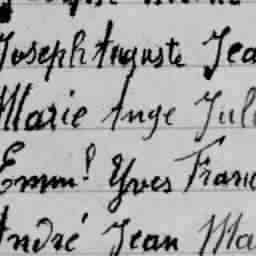 Joseph Auguste Jea
Marie Ange Juli
Emm.l Yves Franc
André Jean Ma